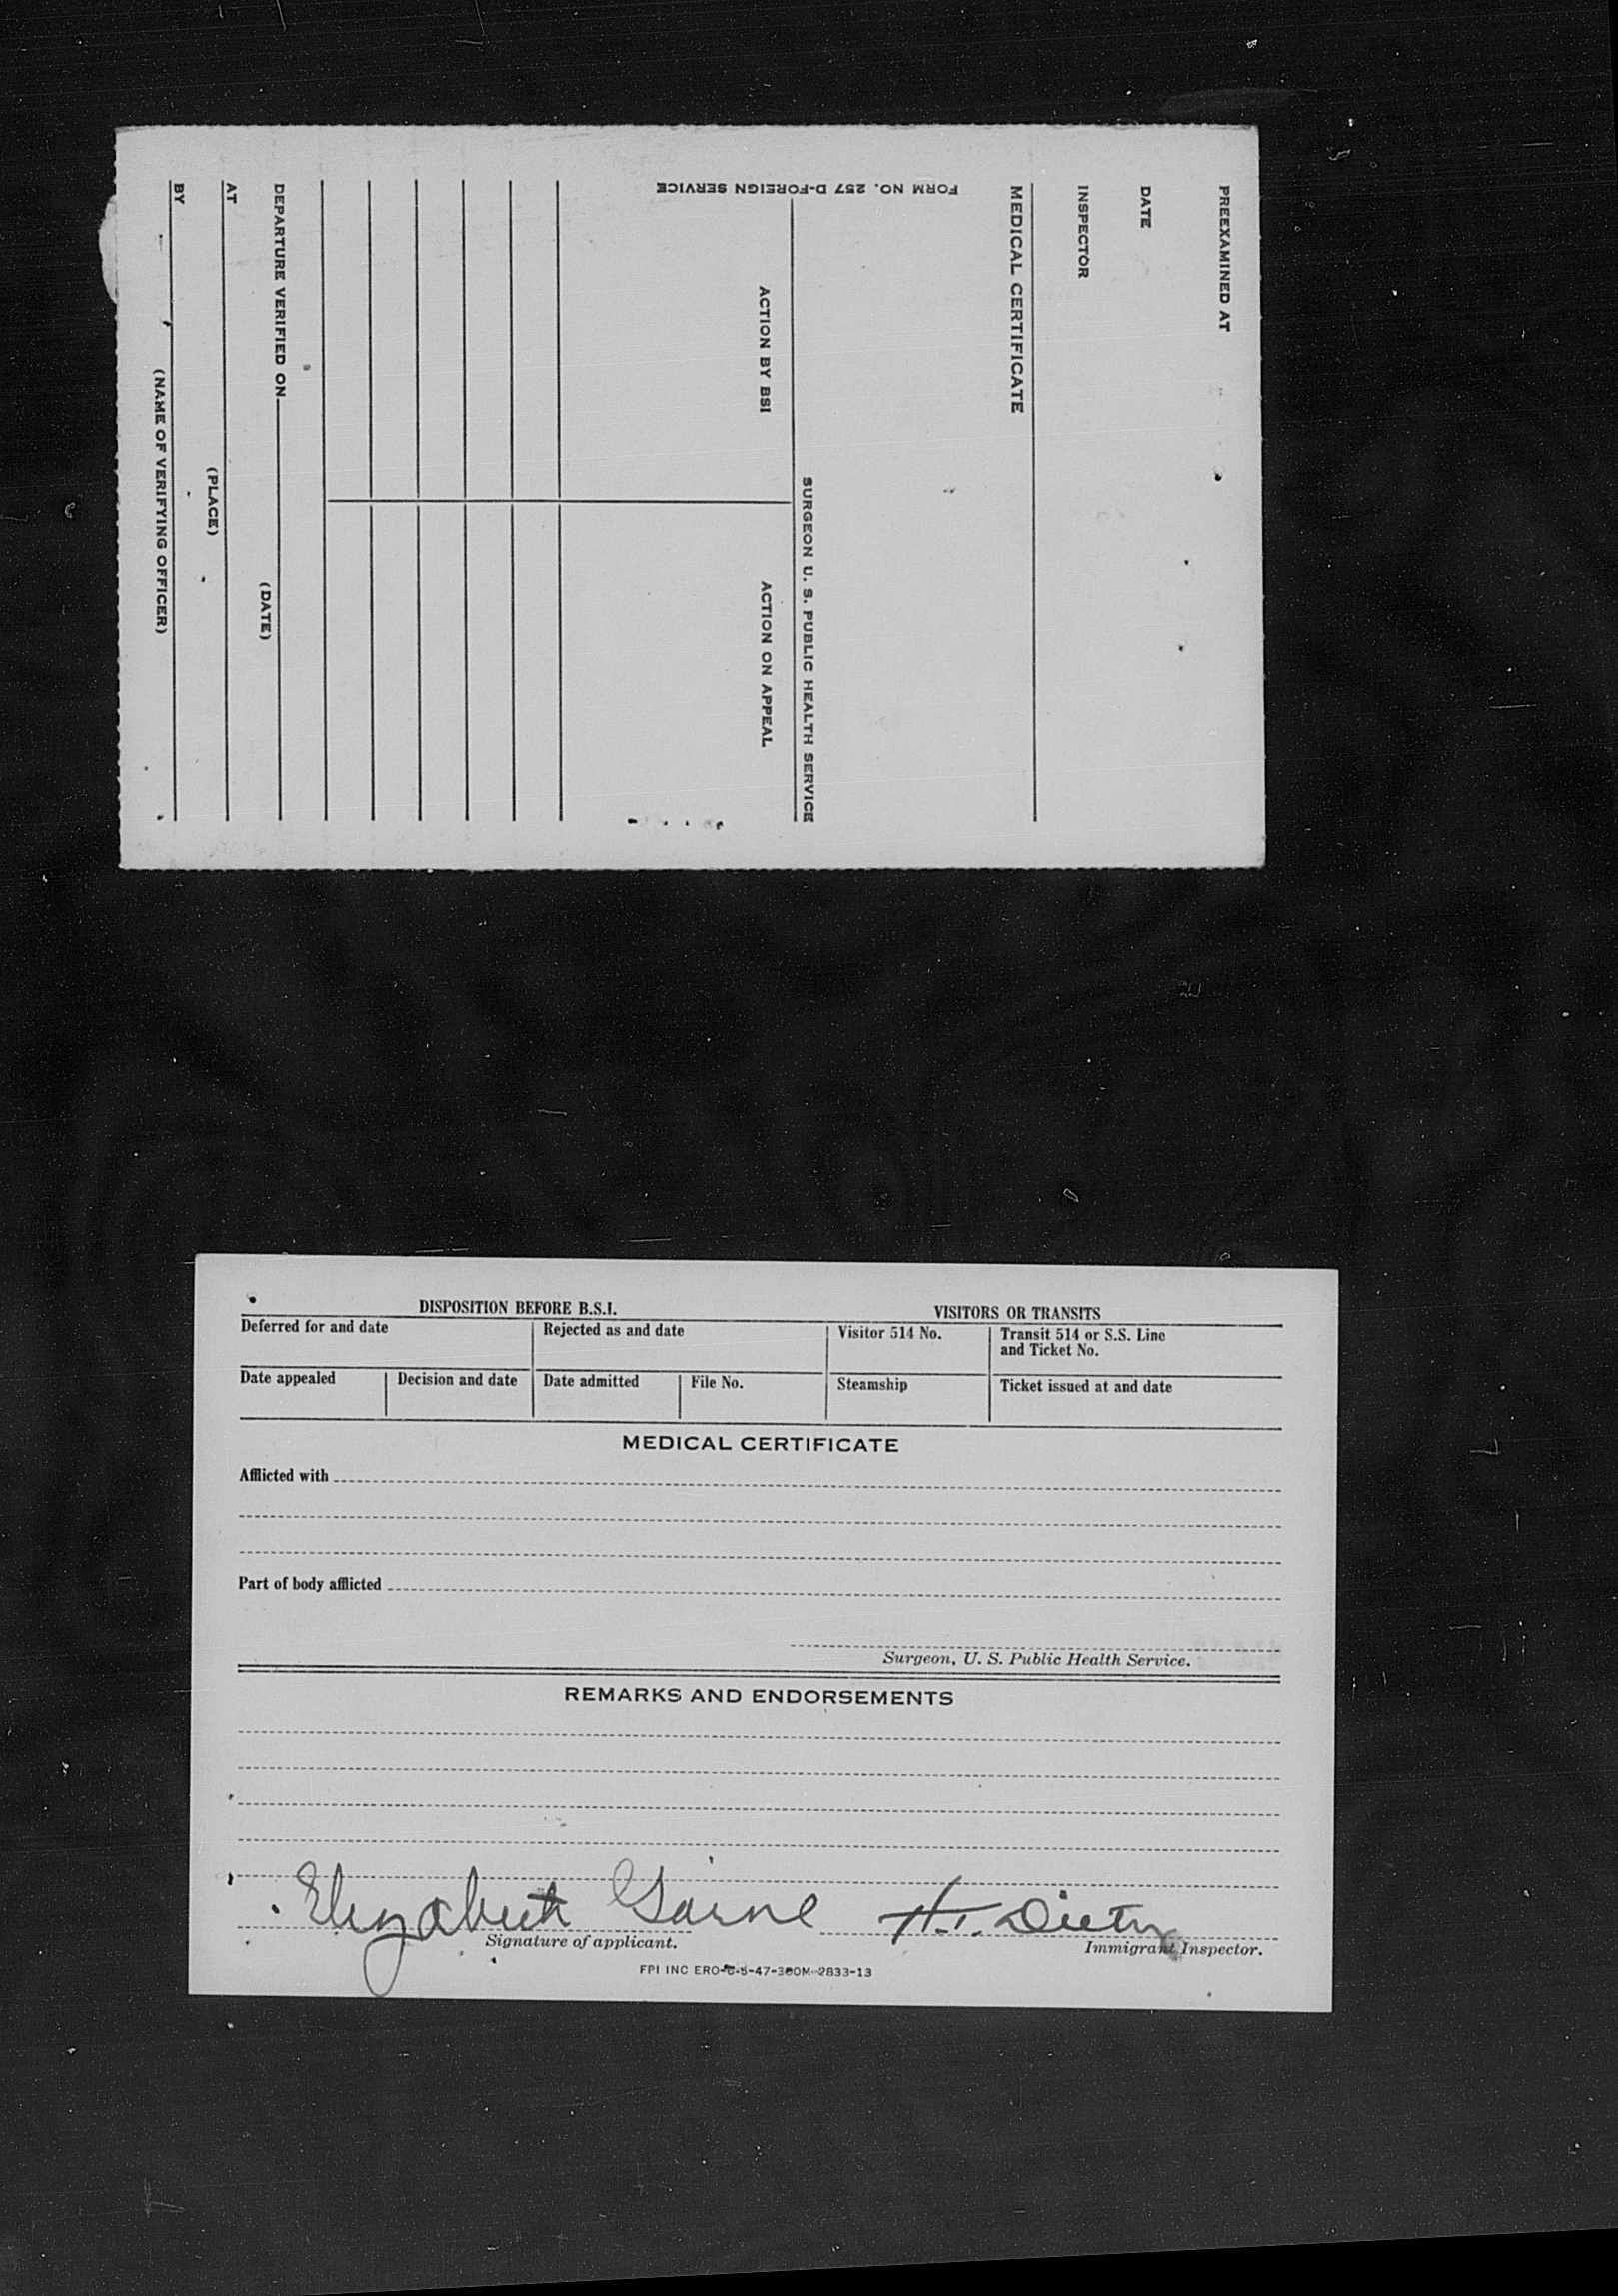 PREEXAMINED AT
DATE
INSPECTOR
MEDICAL CERTIFICATE
SURGEON U. S. PUBLIC HEALTH SERVICE
FORM NO. 257 D-FOREIGN SERVICE
ACTION BY BSI ACTION ON APPEAL
DEPARTURE VERIFIED ON
(DATE)
AT
(PLACE)
BY
(NAME OF VERIFYING OFFICER)
DISPOSITION BEFORE B.S.I. VISITORS OR TRANSITS
Deferred for and date Rejected as and date Visitor 514 No. Transit 514 or S.S. Line
and Ticket No.
Date appealed Decision and date Date admitted File No. Steamship Ticket issued at and date
MEDICAL CERTIFICATE
Afflicted with
Part of body afflicted
Surgeon, U. S. Public Health Service.
REMARKS AND ENDORSEMENTS
Elizabeth
Signature of applicant. Immigrant Inspector.
FPI INC ERO 2833-13